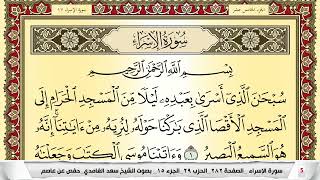 سُورَةُ الإِسْرَاءِ
بِسْمِ اللَّهِ الرَّحْمَٰنِ الرَّحِيمِ
سُبْحَٰنَ الَّذِي أَسْرَىٰ بِعَبْدِهِۦ لَيْلًا مِّنَ الْمَسْجِدِ الْحَرَامِ إِلَى
الْمَسْجِدِ الْأَقْصَا الَّذِي بَٰرَكْنَا حَوْلَهُۥ لِنُرِيَهُۥ مِنْ ءَايَٰتِنَآ إِنَّهُۥ
هُوَ السَّمِيعُ الْبَصِيرُ ١ وَءَاتَيْنَا مُوسَى الْكِتَٰبَ وَجَعَلْنَٰهُ
سورة الإسراء - الصفحة ٢٨٢ الحزب ٢٩ الجزء ١٥ - بصوت الشيخ سعد الغامدي - حفص عن عاصم
5